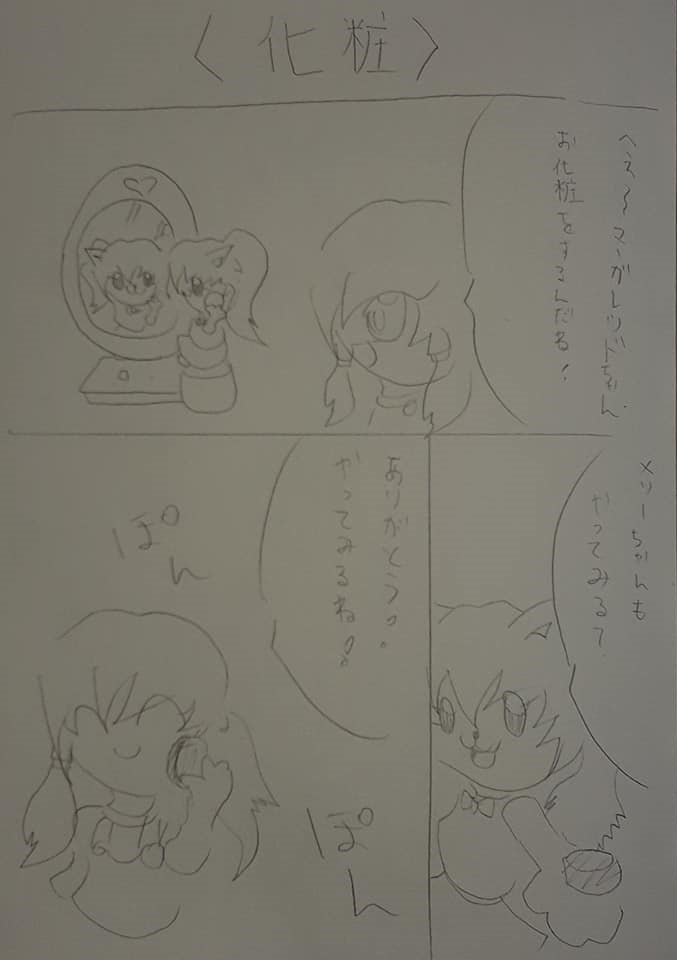 〈化粧〉
へえ〜マーガレッドちゃん
お化粧をするんだね!
メリーちゃんも
やってみる?
ありがとう。
やってみるね。
ぽん
ぽん